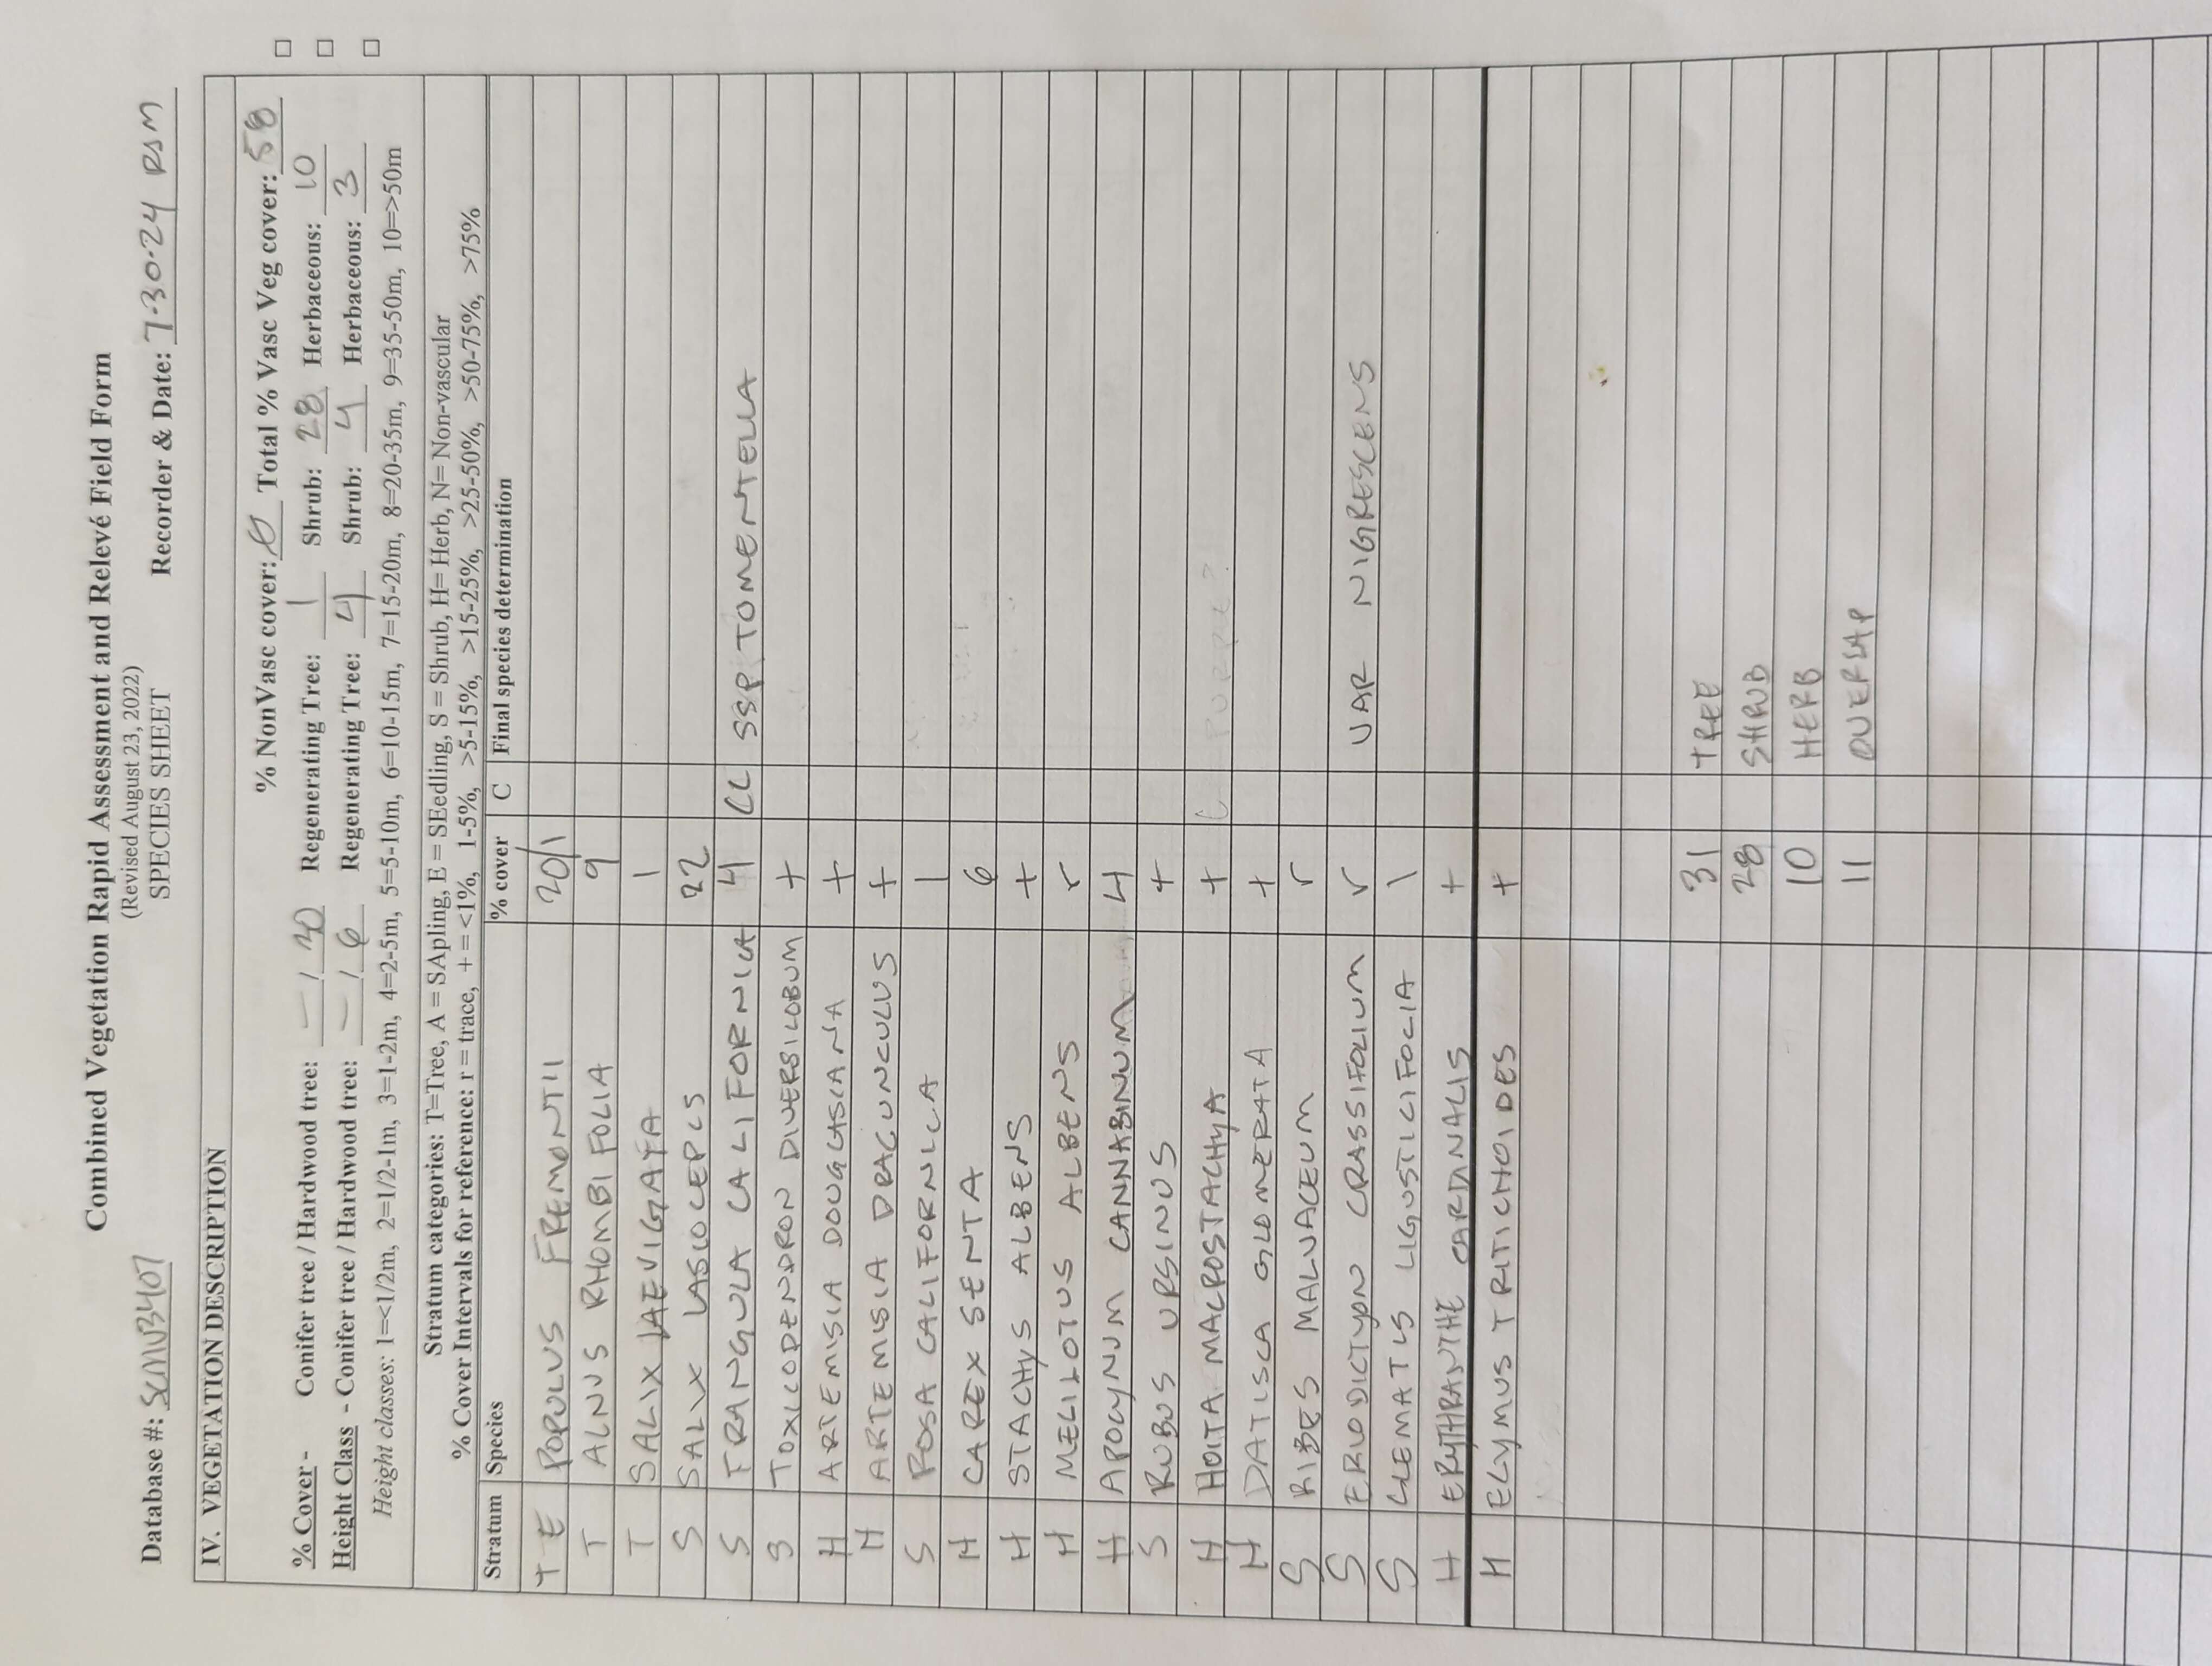 Combined Vegetation Rapid Assessment and Relevé Field Form
(Revised August 23, 2022)
SPECIES SHEET
Database #: SCMV3407 Recorder & Date: 7-30-24 RSM
IV. VEGETATION DESCRIPTION
% NonVasc cover: 0 Total % Vasc Veg cover: 58
% Cover - Conifer tree / Hardwood tree: — / 30 Regenerating Tree: 1 Shrub: 28 Herbaceous: 10
Height Class - Conifer tree / Hardwood tree: — / 6 Regenerating Tree: 4 Shrub: 4 Herbaceous: 3
Height classes: 1=<1/2m, 2=1/2-1m, 3=1-2m, 4=2-5m, 5=5-10m, 6=10-15m, 7=15-20m, 8=20-35m, 9=35-50m, 10=>50m
Stratum categories: T=Tree, A = SApling, E = SEedling, S = Shrub, H= Herb, N= Non-vascular
% Cover Intervals for reference: r = trace, + = <1%, 1-5%, >5-15%, >15-25%, >25-50%, >50-75%, >75%
Stratum Species % cover C Final species determination
T E POPULUS FREMONTII 20/1
T ALNUS RHOMBIFOLIA 9
T SALIX LAEVIGATA 1
S SALIX LASIOLEPIS 22
S FRANGULA CALIFORNICA 4 CC SSP TOMENTELLA
S TOXICODENDRON DIVERSILOBUM +
H ARTEMISIA DOUGLASIANA +
H ARTEMISIA DRACUNCULUS +
S ROSA CALIFORNICA 1
H CAREX SENTA 6
H STACHYS ALBENS +
H MELILOTUS ALBENS r
H APOCYNUM CANNABINUM 4
S RUBUS URSINUS +
H HOITA MACROSTACHYA +
H DATISCA GLOMERATA +
S RIBES MALVACEUM r
S ERIODICTYON CRASSIFOLIUM r VAR NIGRESCENS
S CLEMATIS LIGUSTICIFOLIA 1
H ERYTHRANTHE CARDINALIS +
H ELYMUS TRITICHOIDES +
31 TREE
28 SHRUB
10 HERB
11 OVERLAP